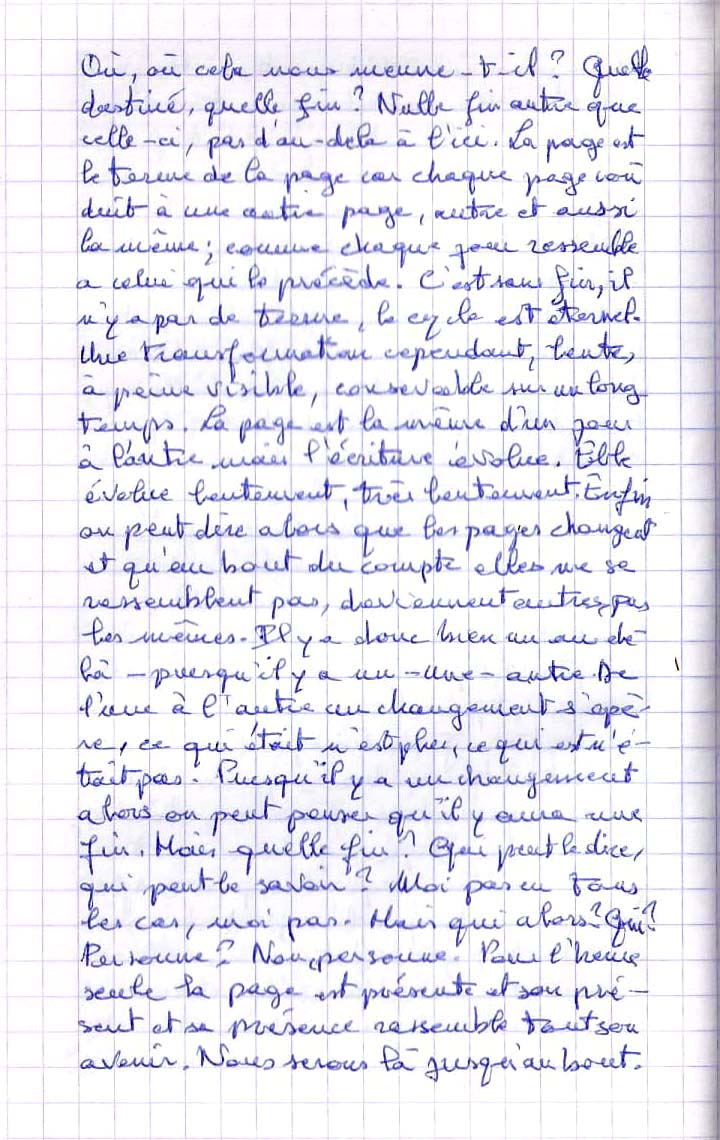 Où, où cela nous menne-t-il? Quelle
destiné, quelle fin? Nulle fin autre que
celle-ci, pas d'au-dela à l'ici. La page est
le terme de la page car chaque page con
duit à une autre page, autre et aussi
la même; comme chaque jour ressemble
a celui qui le précède. C'est sans fin, il
n'y a pas de terme, le cycle est éternel.
Une transformation cependant, lente,
à peine visible, concevable sur un long
temps. La page est la même d'un jour
à l'autre mais l'écriture évolue. Elle
évolue lentement, très lentement. Enfin
on peut dire alors que les pages changent
et qu'au bout du compte elles ne se
ressemblent pas, deviennent autres, pas
les mêmes. Il y a donc bien un au de
là - puisqu'il y a un -une- autre. De
l'une à l'autre un changement s'opè-
re, ce qui était n'est plus, ce qui est n'é-
tait pas. Puisqu'il y a un changement
alors on peut penser qu'il y aura une
fin. Mais quelle fin? Qui peut le dire,
qui peut le savoir? Moi pas en tous
les cas, moi pas. Mais qui alors? Qui?
Personne? Non, personne. Pour l'heure
seule la page est présente et son pré-
sent et sa présence rassemble tout son
avenir. Nous serons là jusqu'au bout.